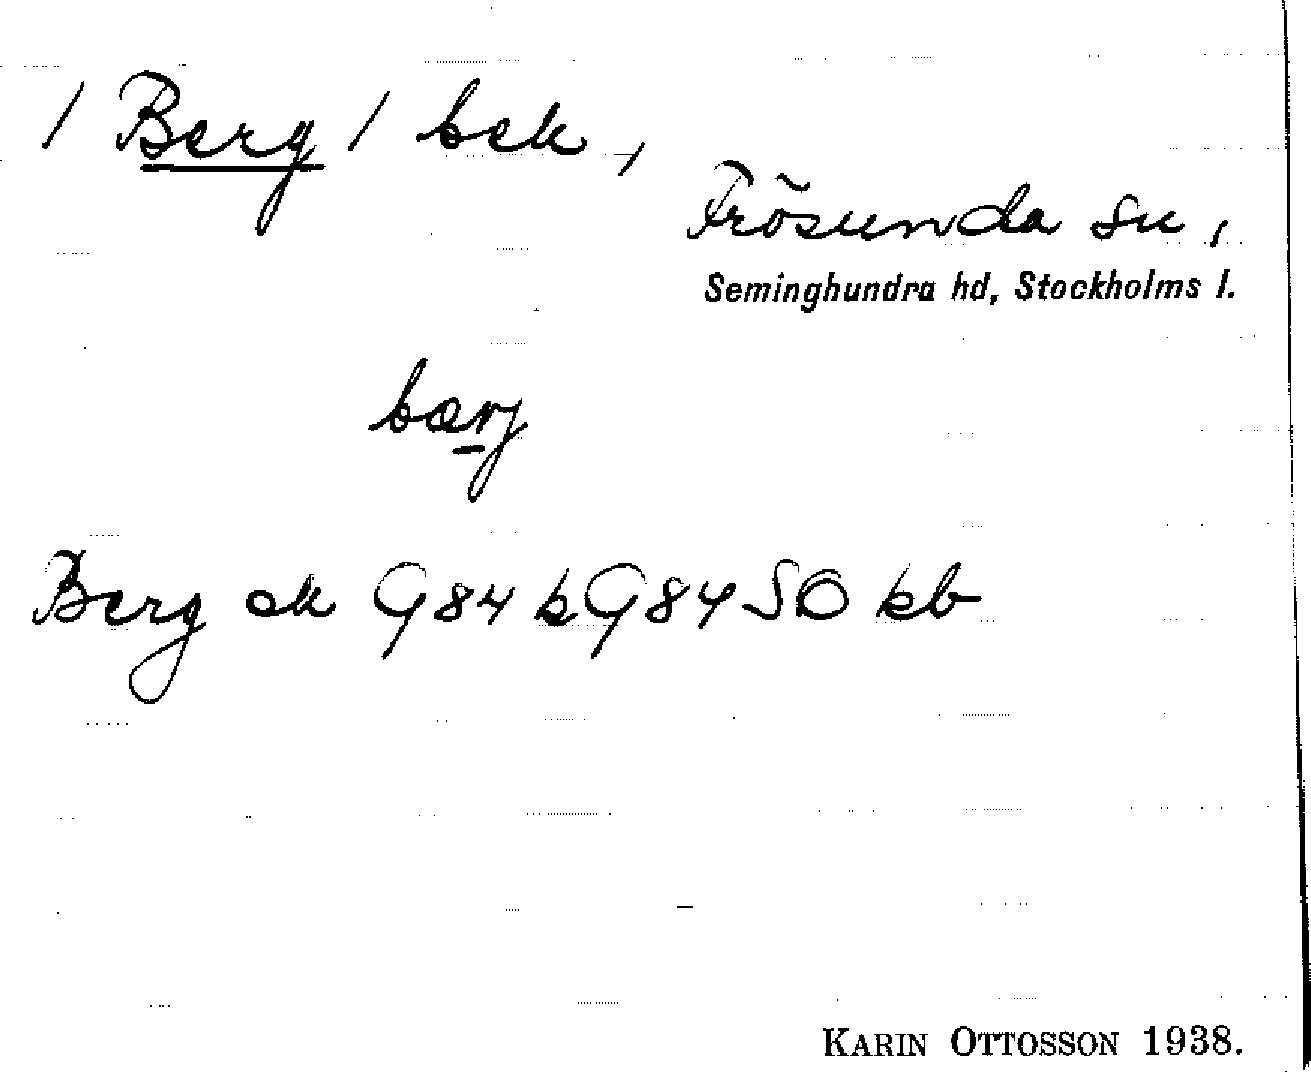 / Berg / bek,
Frösunda sn,
Seminghundra hd, Stockholms l.
bærj
Berg ek G84 k G84 SO kb
KARIN OTTOSSON 1938.